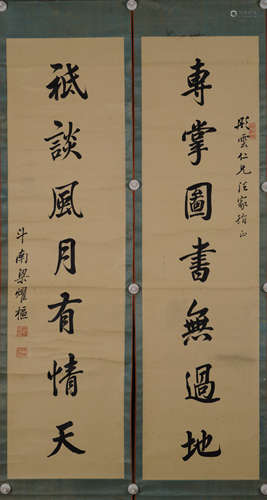 彤雲仁兄法家指正
專掌圖書無過地
祗談風月有情天
斗南梁耀樞